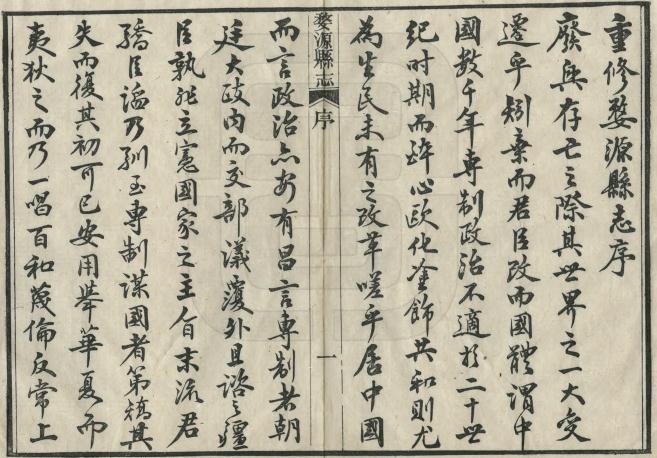 重修婺源縣志序
廢興存亡之際其世界之一大變
遷乎刱棄而君臣改而國體謂中
國數千年專制政治不適於二十世
紀时期而醉心歐化塗飾共和則尤
為生民未有之改革嗟乎居中國
婺源縣志
序
一
而言政治亦安有昌言專制者朝
廷大政內而交部議覆外且諮之疆
臣孰非立憲國家之主旨末流君
驕臣諂乃馴至專制謀國者第矯其
失而復其初可已安用舉華夏而
夷狄之而乃一唱百和蔑倫反常上